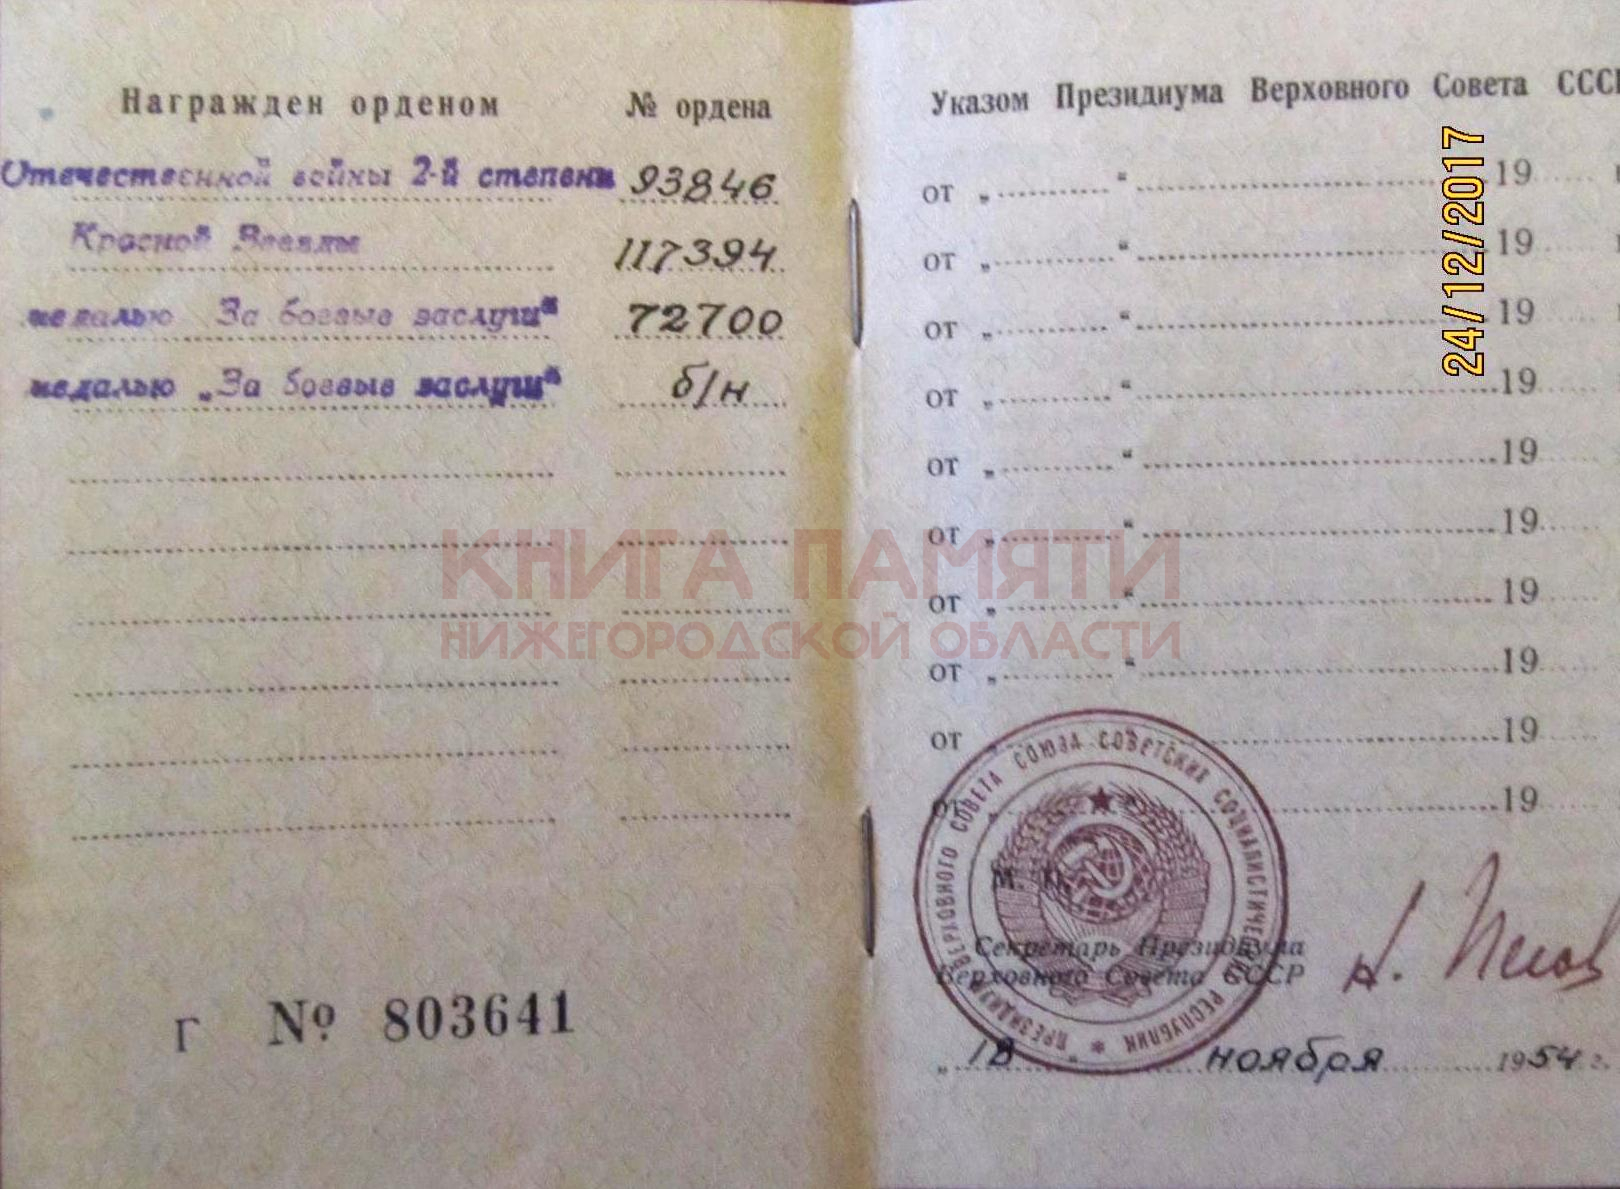 Награжден орденом № ордена
Отечественной войны 2-й степени 93846
Красной Звезды 117394
медалью „За боевые заслуги“ 72700
медалью „За боевые заслуги“ б/н
Г № 803641
Указом Президиума Верховного Совета СССР
от „ “ 19
от „ “ 19
от „ “ 19
от „ “ 19
от „ “ 19
от „ “ 19
от „ “ 19
от „ “ 19
от „ “ 19
от „ “ 19
М. П.
Секретарь Президиума
Верховного Совета СССР
Н. Пегов
„18 “ ноября 1954 г.
ПРЕЗИДИУМ ВЕРХОВНОГО СОВЕТА СОЮЗА СОВЕТСКИХ СОЦИАЛИСТИЧЕСКИХ РЕСПУБЛИК
24/12/2017
КНИГА ПАМЯТИ
НИЖЕГОРОДСКОЙ ОБЛАСТИ